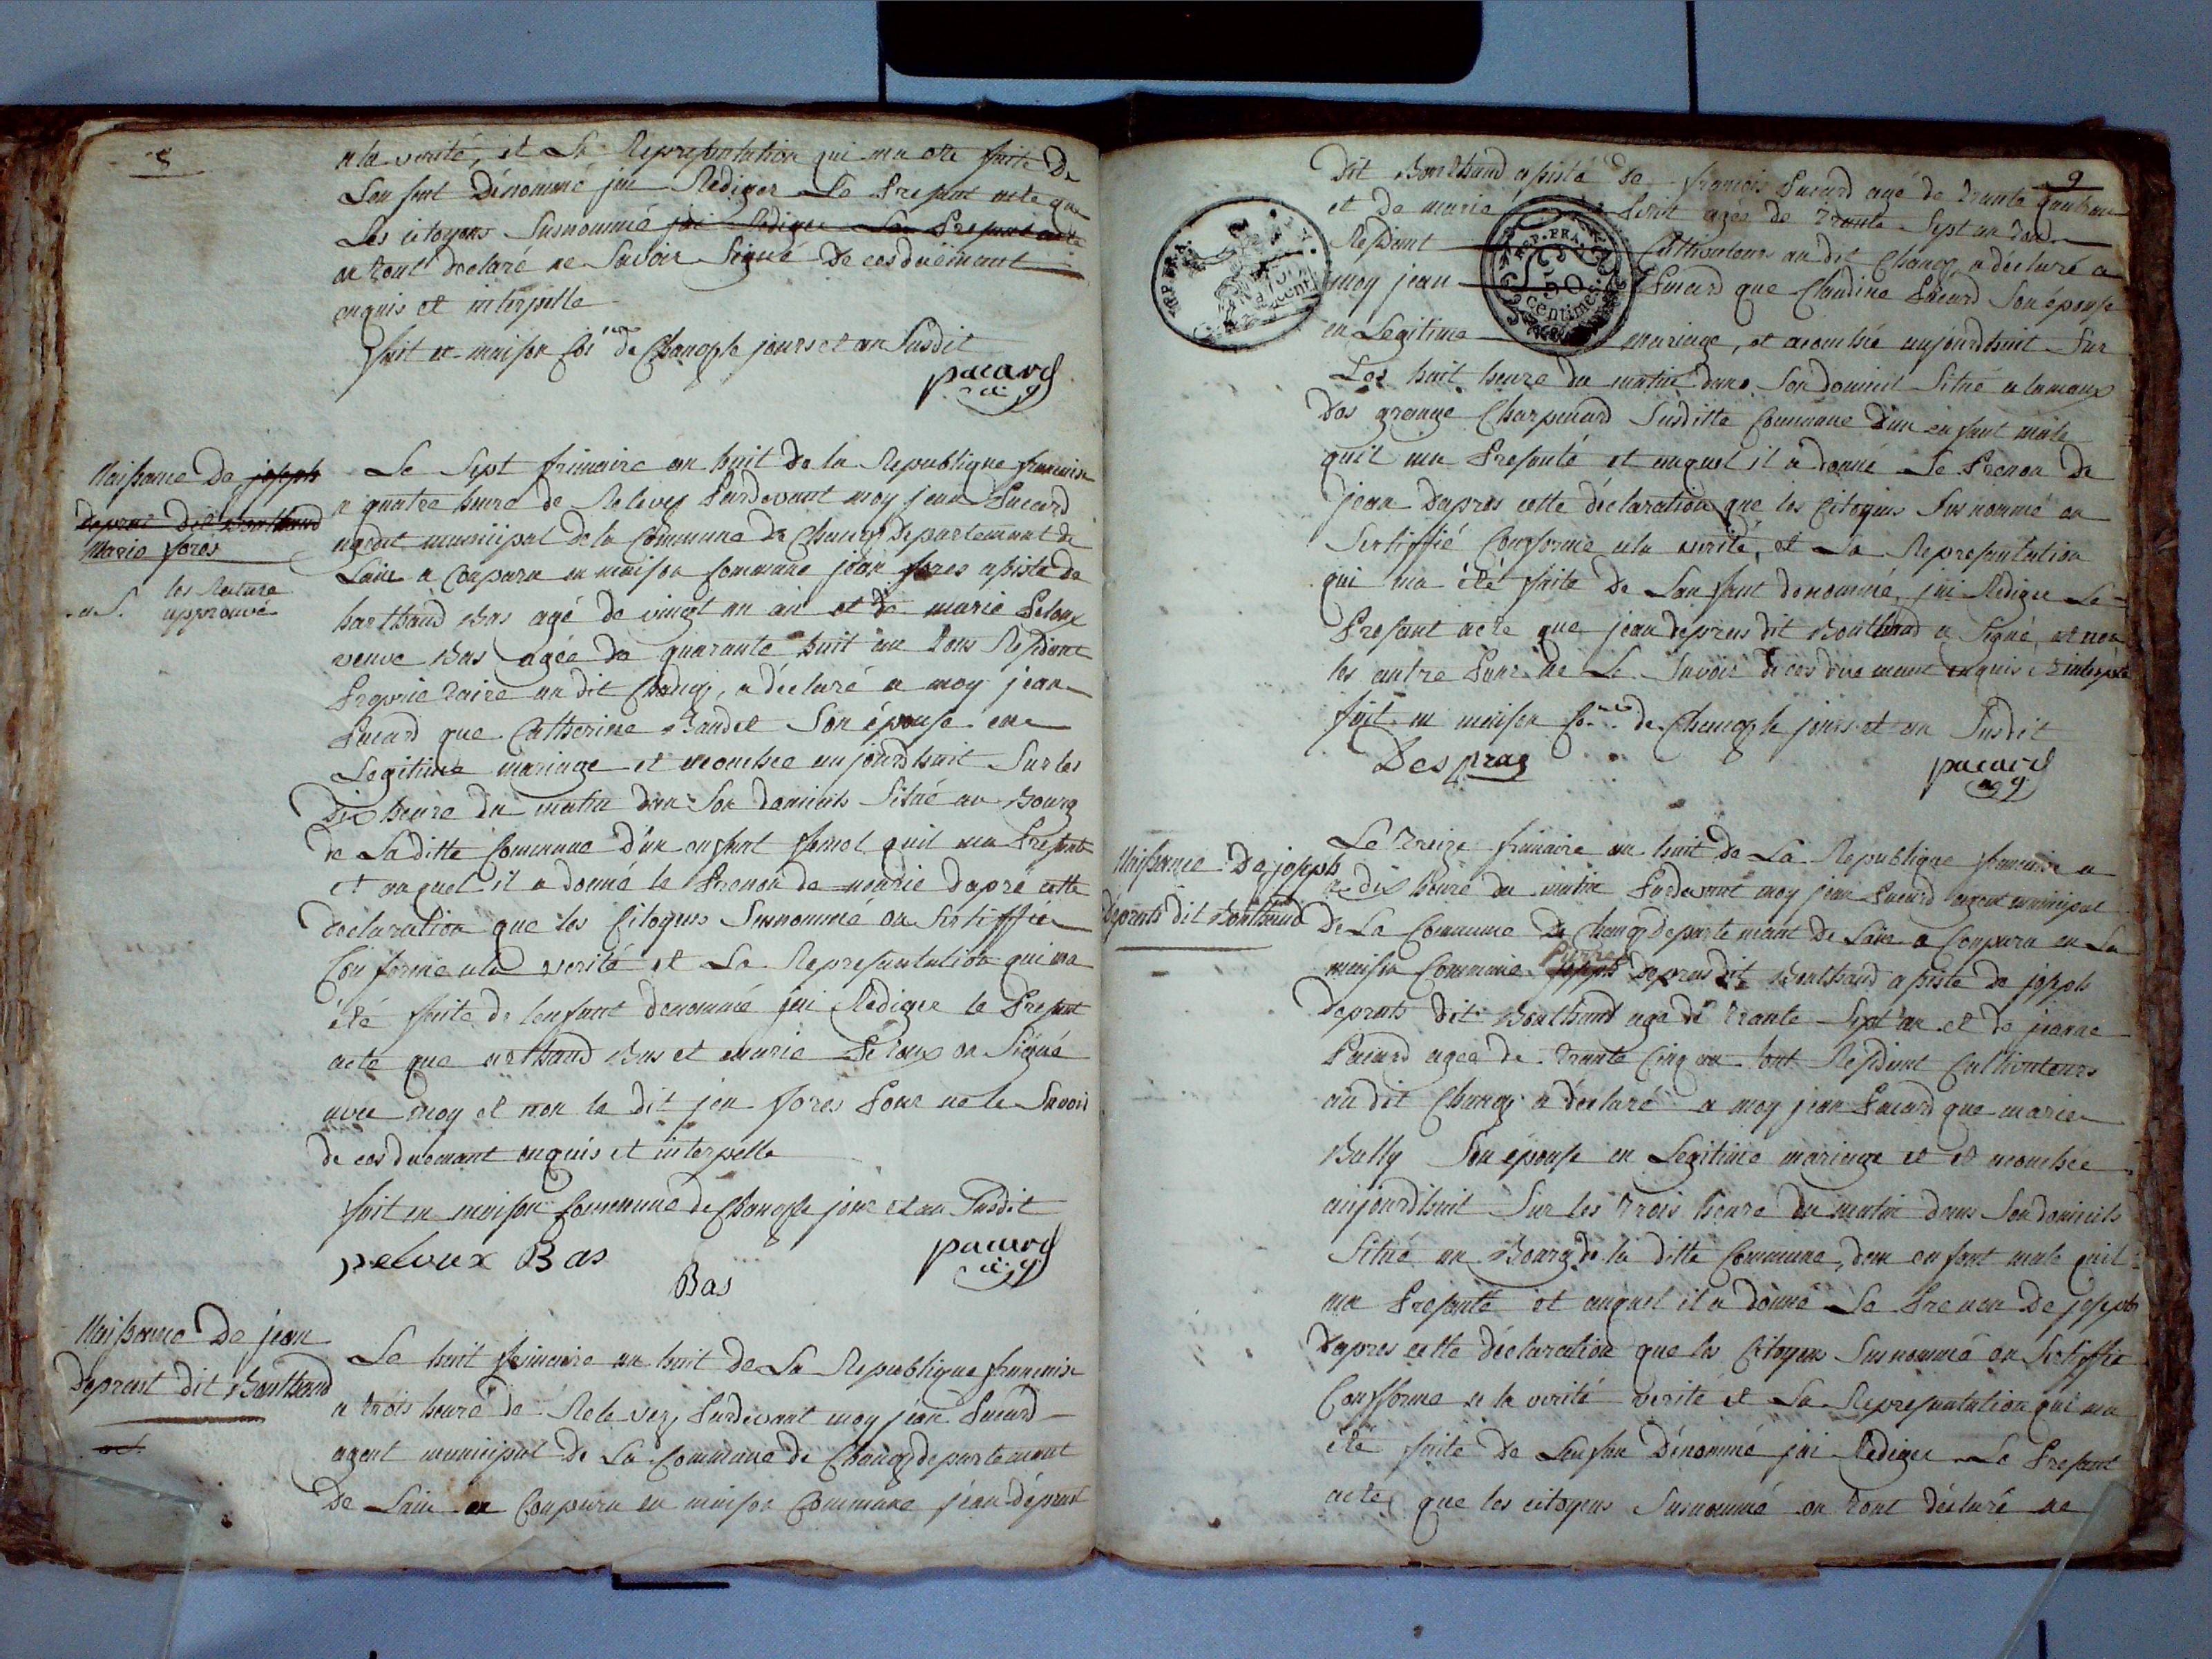 8
a la verité, et La Represantation qui ma ete faite de
Lenfant Dénommé jai Rediger Le Presant acte que
Les citoyens Susnommé jai Rediger Le Presant acte
on tout declaré ne Savoir Signé De ces duëmant
enquis et interpelle
fait en maison Coe de Changy le jours et an Susdit
pacard
ag
Naissance De joseph
deprat dit Bouthaud
Marie forés
les Rature
approuvé
Le Sept frimaire an huit de la Republique francaise
a quatre heure de Relevez Pardevant moy jean Pacard
agent municipal de la Commune de Changy Departemant de
Laire a Conparu en maison Commune jean fores assiste de
harthaud Bas agé de vingt un an et de marie Peloux
veuve Bas agée de quarante huit an tous Residant
Proprietaire au dit Changy, a déclaré a moy jean
Pacard que Catherine Baudel Son épouse en
Legitime mariage et acouchee aujourdhuit Sur les
Dix heure du matin dans Son domicils Situé au Bourg
de Laditte Commune d'un enfant femel quil ma Presanté
et auquel il a donné le Prenon de marie dapré cette
declaration que les Citoyens Susnommé on Sertiffié
Conforme a la verité et La Represantation qui ma
été faite de lenfant denommé jai Rediger le Presant
acte que arthaud Bas et marie Peloux on Signé
avec moy et non le dit jean fores Pour ne le Savoir
de ces duemant enquis et interpelle
fait en maison Commune de Changy le jour et an Susdit
peloux Bas
pacard
ag
Bas
Naissance De jean
Deprast dit Bouthaud
Le huit frimaire an huit de La Republique francaise
a trois heure de Relevez, Pardevant moy jean Pacard
agent municipal de La Commune de Changy departemant
De Laire a Conparu en maison Commune jean déprast
9
REP. FRA.
75 cent.
REP. FRA.
50
centimes.
Dit Bouthaud assisté de francois Pacard agé de trante quatre an
et de marie Perit agée de trante Sept an tous
Residant Cultivateurs au dit Changy, a déclaré a
moy jean Pacard que Claudine Pacard Son épouse
en Legitime mariage, et acouchée aujourdhuit Sur
Les huit heure du matin dans Son domicil Situé a lamaux
das grange Charpenard Susditte Commune dun enfant male
quil ma Presanté et auquel il a donné Le Prenon de
jean Dapres cette déclaration que les Citoyens Susnommé on
Sertiffié Conforme a la verité, et La Represantation
qui ma été faite De Lanfant denommé, jai Rediger Le
Presant acte que jean depras dit Bouthaud a Signé, et non
les autre Pour ne Le Savoir de ces duemant enquis et interpelé
fait en maison Co.ne de Changy le jours et an Susdit
Despraz
pacard
ag
Naissance De joseph
Deprats dit Bouthaud
Le treize frimaire an huit de La Republique francaise a
dix heure du matin Pardevant moy jean Pacard agent municipal
de La Commune de Changy departemant de Laire a Conparu en La
maison Commune joseph Pierre Depras dit Bouthaud assiste de joseph
deprats dit Bouthaud agé de trante Sept an et de jeanne
Pacard agée de trante Cinq an tout Residant Cultivateurs
au dit Changy a déclaré a moy jean Pacard que marie
Bully Son épouse en Legitime mariage et et acouchée
aujourdhuit Sur les trois heure du matin dans Son domicils
Situé au Bourg de la ditte Commune, dun enfant male quil
ma Presanté et auquel il a donné Le Prenon De joseph
dapres cette déclaration que les Citoyens Susnommé on Sertiffié
Conforme a la verité verité et La Represantation qui ma
été faite De Lenfan Dénommé jai Rediger Le Presant
acte que les citoyens Susnommé on tout déclaré ne